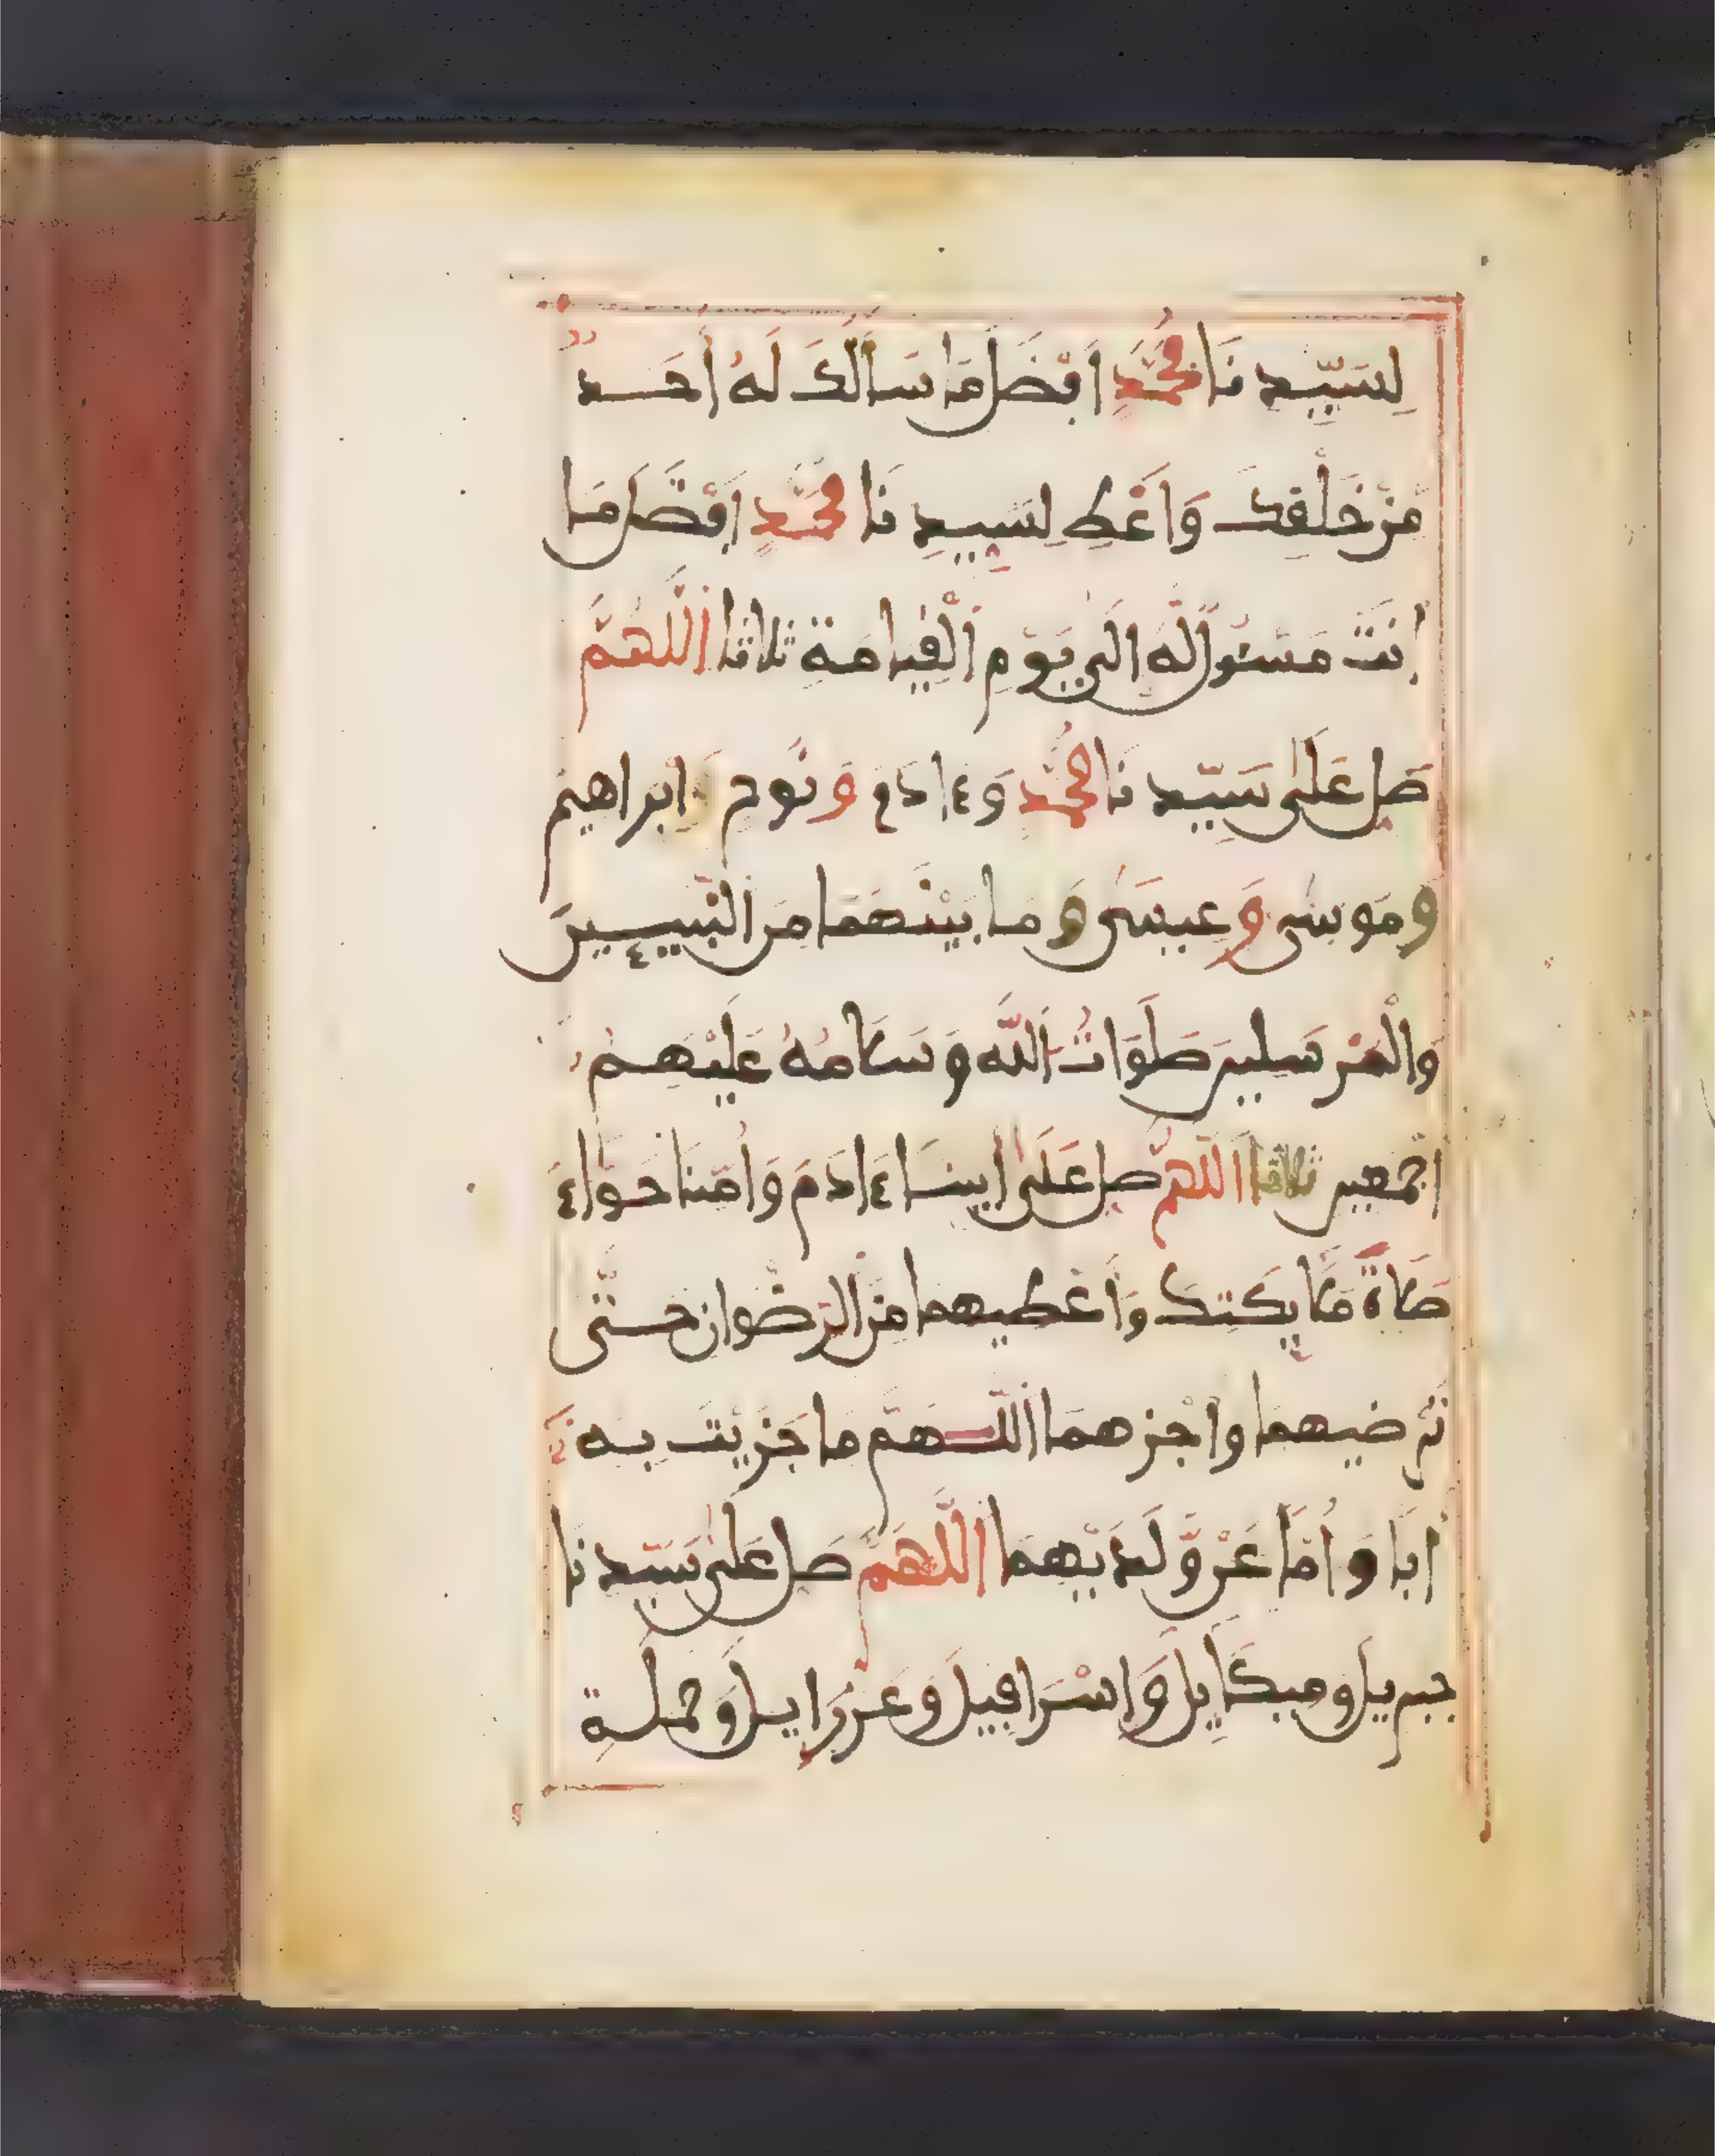 لِسَيِّدِنَا مُحَمَّدٍ اَفْضَلَ مَا سَاَلَكَ لَهُ اَحَدٌ
مِّنْ خَلْقِكَ وَاَعْطِ لِسَيِّدِنَا مُحَمَّدٍ اَفْضَلَ مَا
اَنْتَ مَسْئُولٌ لَّهُ اِلَى يَوْمِ الْقِيَامَةِ ثلاثا اَللَّهُمَّ
صَلِّ عَلَى سَيِّدِنَا مُحَمَّدٍ وَءَادَمَ وَنُوحٍ وَاِبْرَاهِيمَ
وَمُوسَى وَعِيسَى وَمَا بَيْنَهُمَا مِنَ النَّبِيـِٕينَ
وَالْمُرْسَلِينَ صَلَوَاتُ اللَّهِ وَسَلَامُهُ عَلَيْهِمُ
اَجْمَعِينَ ثلاثا اَللَّهُمَّ صَلِّ عَلَى اَبِينَا ءَادَمَ وَاُمِّنَا حَوَّاءَ
صَلَاةَ مَلَائِكَتِكَ وَاَعْطِيهِمَا مِنَ الرِّضْوَانِ حَتَّى
تُرْضِيَهُمَا وَاَجْزِهِمَا اللَّهُمَّ مَا جَزَيْتَ بِهِ
اَبًا وَاُمًّا عَنْ وَّلَدَيْهِمَا اَللَّهُمَّ صَلِّ عَلَى سَيِّدِنَا
جِبْرِيلَ وَمِيكَايِلَ وَاِسْرَافِيلَ وَعَزْرَايِلَ وَحَمَلَةِ